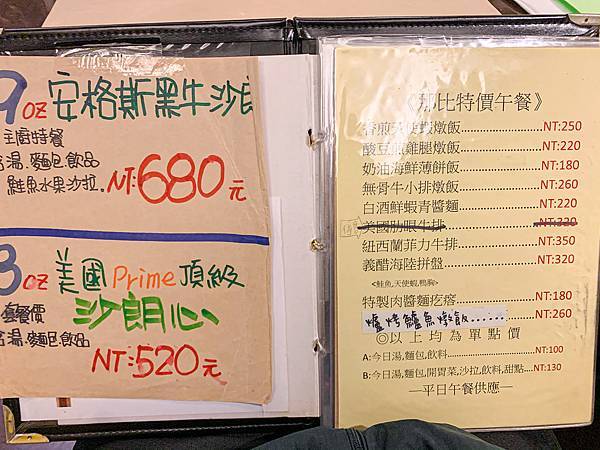 9oz 安格斯黑牛沙朗
主廚特餐
湯.麵包.飲品
鮭魚水果沙拉. NT:680元
8oz 美國Prime頂級
套餐價 沙朗心
湯.麵包飲品
NT:520元
《那比特價午餐》
香煎天使蝦燉飯......................NT:250
酸豆煎雞腿燉飯......................NT:220
奶油海鮮薄餅飯......................NT:180
無骨牛小排燉飯......................NT:260
白酒鮮蝦青醬麵......................NT:220
美國肋眼牛排......................NT:320
紐西蘭菲力牛排......................NT:350
義醋海陸拼盤......................NT:320
<鮭魚,天使蝦,鴨胸>
特製肉醬麵疙瘩......................NT:180
爐烤鱸魚燉飯......NT:260
◎以上均為單點價
A:今日湯,麵包,飲料......................NT:100
B:今日湯,麵包,開胃菜,沙拉,飲料,甜點....NT:130
—平日午餐供應—